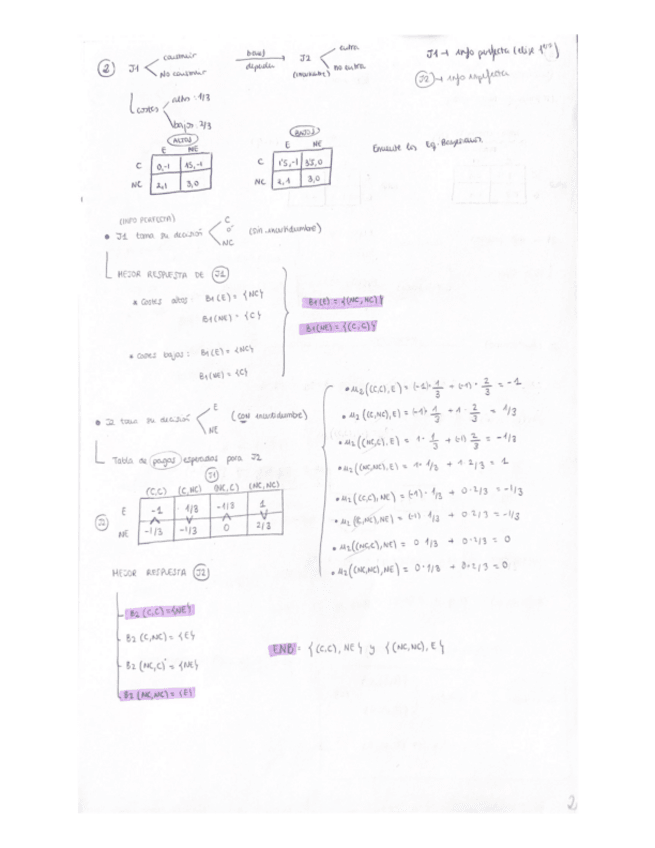 2 J1 construir
No construir
J2 entra
no entra
J1 → info perfecta (elige 1º)
J2 → info imperfecta
COSTES alto: 1/3
bajo: 2/3
ALTOS
E NE
C 0,-1 15,-1
NC 2,1 3,0
BAJOS
E NE
C 15,-1 33,0
NC 2,1 3,0
Encuentre los Eq. Bayesianos
(INFO PERFECTA)
• J1 toma su decisión C ó NC (sin incertidumbre)
MEJOR RESPUESTA DE J1
* Costes altos: B1(E) = {NC}
B1(NE) = {C}
• Costes bajos: B1(E) = {NC}
B1(NE) = {C}
B1(E) = {(NC, NC)}
B1(NE) = {(C, C)}
• J2 toma su decisión E NE (con incertidumbre)
Tabla de pagos esperados para J2
J1
(C,C) (C,NC) (NC,C) (NC,NC)
J2
E -1 1/3 -1/3 1
NE -1/3 -1/3 0 2/3
• u2((C,C), E) = (-1)·1/3 + (-1)·2/3 = -1
• u2((C,NC), E) = (-1)·1/3 + 1·2/3 = 1/3
• u2((NC,C), E) = 1·1/3 + (-1)2/3 = -1/3
• u2((NC,NC), E) = 1·1/3 + 1·2/3 = 1
• u2((C,C), NE) = (-1)·1/3 + 0·2/3 = -1/3
• u2((C,NC), NE) = (-1) 1/3 + 0 2/3 = -1/3
• u2((NC,C), NE) = 0 1/3 + 0·2/3 = 0
• u2((NC,NC), NE) = 0·1/3 + 0·2/3 = 0
MEJOR RESPUESTA J2
B2 (C,C) = {NE}
B2 (C,NC) = {E}
B2 (NC,C) = {NE}
B2 (NC,NC) = {E}
ENB = {(C,C), NE} y {(NC,NC), E}
2